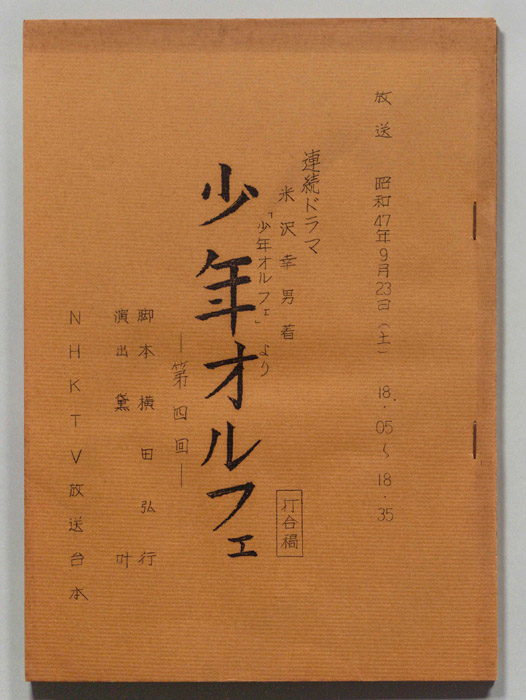 放送 昭和47年9月23日(土) 18.05〜18.35
連続ドラマ
米沢幸男著
「少年オルフェ」より
打合稿
少年オルフェ
―第四回―
脚本 横田弘行
演出 黛叶
NHKTV放送台本